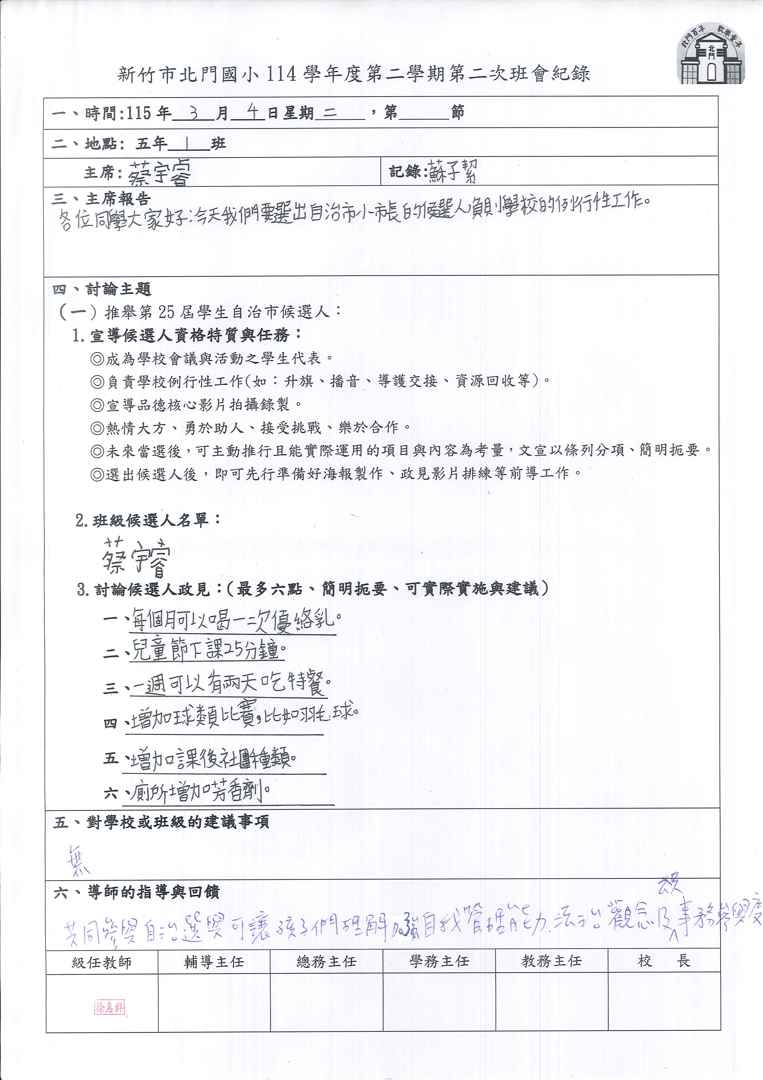 北門百年 歡樂童年
北門
新竹市北門國小114學年度第二學期第二次班會紀錄
一、時間:115年 3 月 4 日星期 二 ,第 節
二、地點: 五年 1 班
主席: 蔡宇睿 記錄: 蘇子絜
三、主席報告
各位同學大家好:今天我們要選出自治市小市長的候選人負則學校的例行性工作。
四、討論主題
(一) 推舉第25屆學生自治市候選人:
1. 宣導候選人資格特質與任務:
◎成為學校會議與活動之學生代表。
◎負責學校例行性工作(如:升旗、播音、導護交接、資源回收等)。
◎宣導品德核心影片拍攝錄製。
◎熱情大方、勇於助人、接受挑戰、樂於合作。
◎未來當選後,可主動推行且能實際運用的項目與內容為考量,文宣以條列分項、簡明扼要。
◎選出候選人後,即可先行準備好海報製作、政見影片排練等前導工作。
2. 班級候選人名單:
蔡宇睿
3. 討論候選人政見:(最多六點、簡明扼要、可實際實施與建議)
一、每個月可以喝一二次優絡乳。
二、兒童節下課25分鐘。
三、一週可以有兩天吃特餐。
四、增加球類比賽,比如羽毛球。
五、增加課後社團種類。
六、廁所增加芳香劑。
五、對學校或班級的建議事項
無
六、導師的指導與回饋
共同參與自治選舉可讓孩子們理解加強自我管理能力、法治觀念及事務參與度
級任教師 輔導主任 總務主任 學務主任 教務主任 校 長